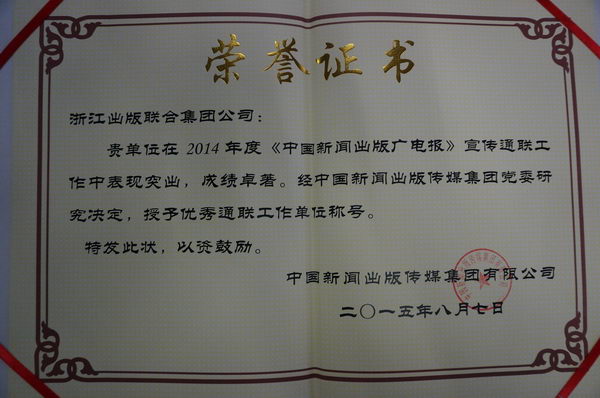 荣誉证书
浙江出版联合集团公司：
贵单位在 2014 年度《中国新闻出版广电报》宣传通联工
作中表现突出，成绩卓著。经中国新闻出版传媒集团党委研
究决定，授予优秀通联工作单位称号。
特发此状，以资鼓励。
中国新闻出版传媒集团有限公司
二〇一五年八月七日